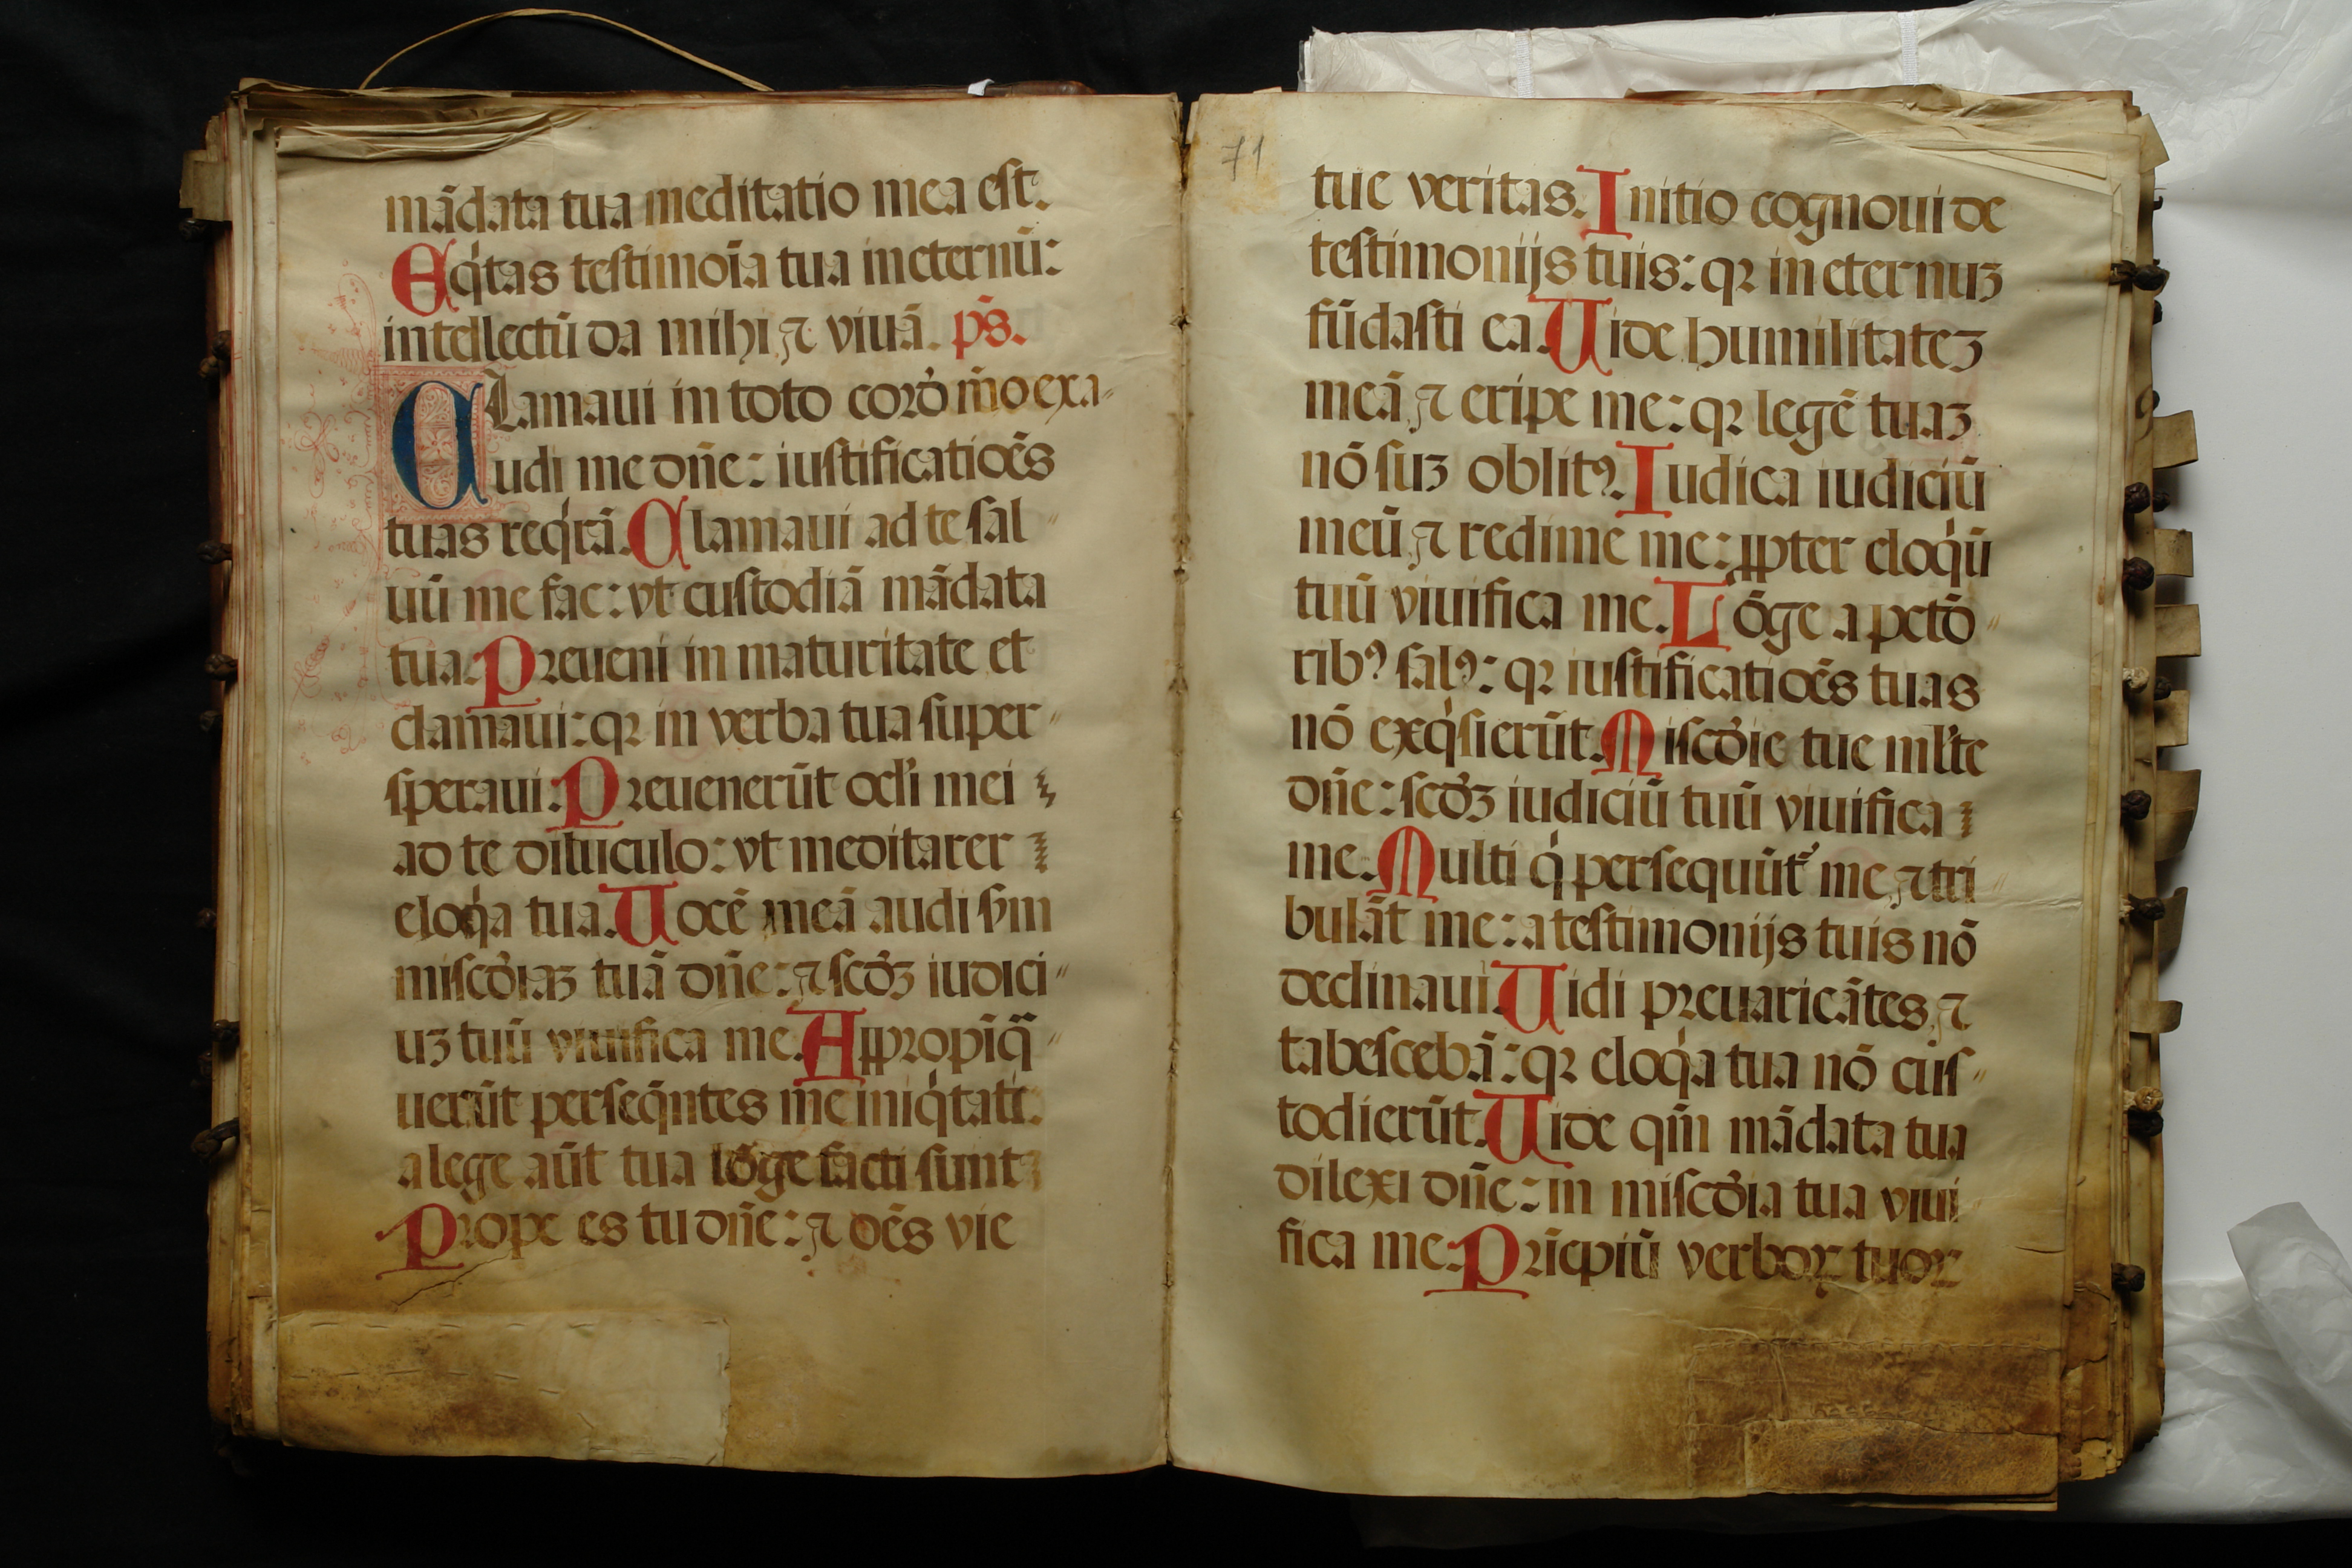 mādata tua meditatio mea est.
Eq͛tas testimōia tua in eternū:
intellectū da mihi ⁊ viuā. p̄s.
Clamaui in toto cord̓ m̄o exa〃
udi me dn̄e: iustificatiōēs
tuas req͛rā. Clamaui ad te sal〃
uū me fac: vt custodiā mādata
tua. Preueni in maturitate et
clamaui: qꝛ in verba tua super〃
speraui: Preuenerūt ocl̓i mei
ad te diluculo: vt meditarer
eloq͛a tua. Uocē meā audi ẜm
misc̄d̓iaꝫ tuā dn̄e: ⁊ scd̓ꝫ iudici〃
uꝫ tuū viuifica me. Appropīq̄〃
uerūt perseq̄ntes me iniq͛tati:
a lege aūt tua lōge facti sunt
Prope es tu dn̄e: ⁊ oēs vie
71
tue veritas. Initio cognoui de
testimonijs tuis: qꝛ in eternuꝫ
fūdasti ea. Uide humilitateꝫ
meā ⁊ eripe me: qꝛ legē tuaꝫ
nō suꝫ oblitꝰ. Iudica iudiciū
meū ⁊ redime me: ꝓpter eloq͛ū
tuū viuifica me. Lōge a pctō〃
ribꝰ salꝰ: qꝛ iustificatiōēs tuas
nō exq͛sierūt. Miscd̓ie tue ml̓te
dn̄e: scd̓ꝫ iudiciū tuū viuifica
me. Multi q͛ persequūt᷑ me ⁊ tri〃
bulāt me: a testimonijs tuis nō
declinaui. Uidi preuaricātes ⁊
tabescebā: qꝛ eloq͛a tua nō cus〃
todierūt. Uide qm̄ mādata tua
dilexi dn̄e: in miscd̓ia tua viui〃
fica me. Prīcpiū verboꝝ tuoꝝ